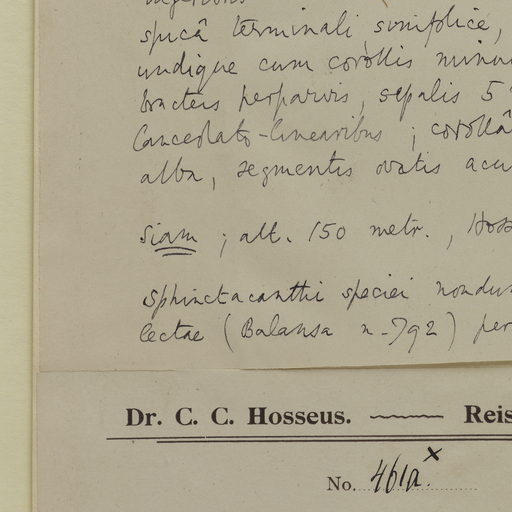 spicâ terminali simplice,
undique cum corollis
bracteis perparvis, sepalis 5
lanceolato-linearibus; corollâ
alba, segmentis ovatis acu
Siam; alt. 150 metr., Hoss
Sphinctacanthi speciei nondum
lectae (Balansa n. 792) per
Dr. C. C. Hosseus. Reis
No. 461a. x